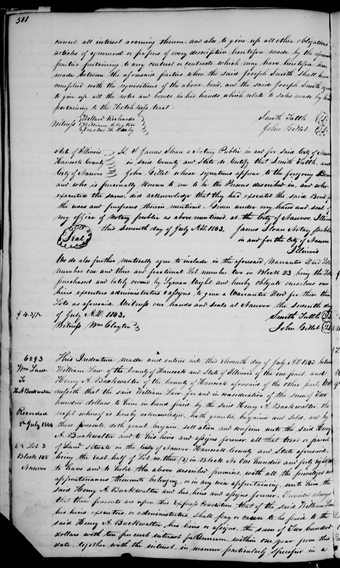 511
cancel all interest accruing thereon, and also to give up all other obligations
articles of agreement or papers of every description heretofore made by the
parties pertaining to any contract or contracts which may have heretofore been
made between the aforesaid parties when the said Joseph Smith shall have
complied with the requisitions of the above bond, and the said Joseph Smith
to give up all the notes and bonds in his hands which relate to sales made by
pertaining to the Hotchkiss tract.
Willard Richards
Witness William Clayton
Smith Tuttle
John Gillet
State of Illinois
Hancock County
City of Nauvoo
I, James Sloan a Notary Public in and for said City of Nauvoo
in said County and State do Certify that Smith Tuttle and
John Gillet whose signatures appear to the foregoing Bond
and who is personally known to me to be the Persons described in, and who
executed the same, did acknowledge that they had executed the said Bond for
the uses and purposes therein mentioned. Given under my hand and seal of
my office of Notary public as above mentioned at the City of Nauvoo Illinois
this Seventh day of July A.D. 1843.
Seal
James Sloan Notary Public
in and for the City of Nauvoo
Illinois
We do also further mutually agree to include in the aforesaid Warrantee Deed Lots
number one and two and fractional Lot number two in Block 23 being the Lots
purchased and lately owned by Lyman Wight and hereby obligate ourselves our
heirs executors administrators & assigns, to give a Warrantee Deed for them the
Lots as aforesaid. Witness our hands and seals at Nauvoo the Seventh day
of July A.D. 1843.
Witness Wm Clayton
Smith Tuttle
John Gillet
6293
Wm Law
To
H. A. Buckwalter
Recorded
July 1844
Lot 3
Block 108
Nauvoo
This Indenture made and entered into this eleventh day of July A.D. 1843 between
William Law of the County of Hancock and State of Illinois of the one part and
Henry A. Buckwalter of the County of Hancock aforesaid of the other part
that the said William Law for and in consideration of the sum of two
hundred dollars to him in hand paid by the said Henry A. Buckwalter, the
receipt whereof is hereby acknowledged, hath granted, bargained and sold, and by
these presents, doth grant bargain sell alien and confirm unto the said Henry
A. Buckwalter and to his heirs and assigns forever all that tract or parcel
of land situate in the City of Nauvoo Hancock County and State aforesaid,
being the east half of Lot in Block No. One hundred and
to have and to hold the above described premises, with all the privileges
appurtenances thereunto belonging, or in any wise appertaining unto him the
said Henry A. Buckwalter and his heirs and assigns forever. Provided always
that these presents are upon the express condition that if the said William Law
his heirs, executors or administrators, shall pay or cause to be paid to the
said Henry A. Buckwalter, his heirs or assigns, the sum of two hundred
dollars with ten per cent interest per annum, within one year from this
date, together with the interest, in manner particularly specified in a